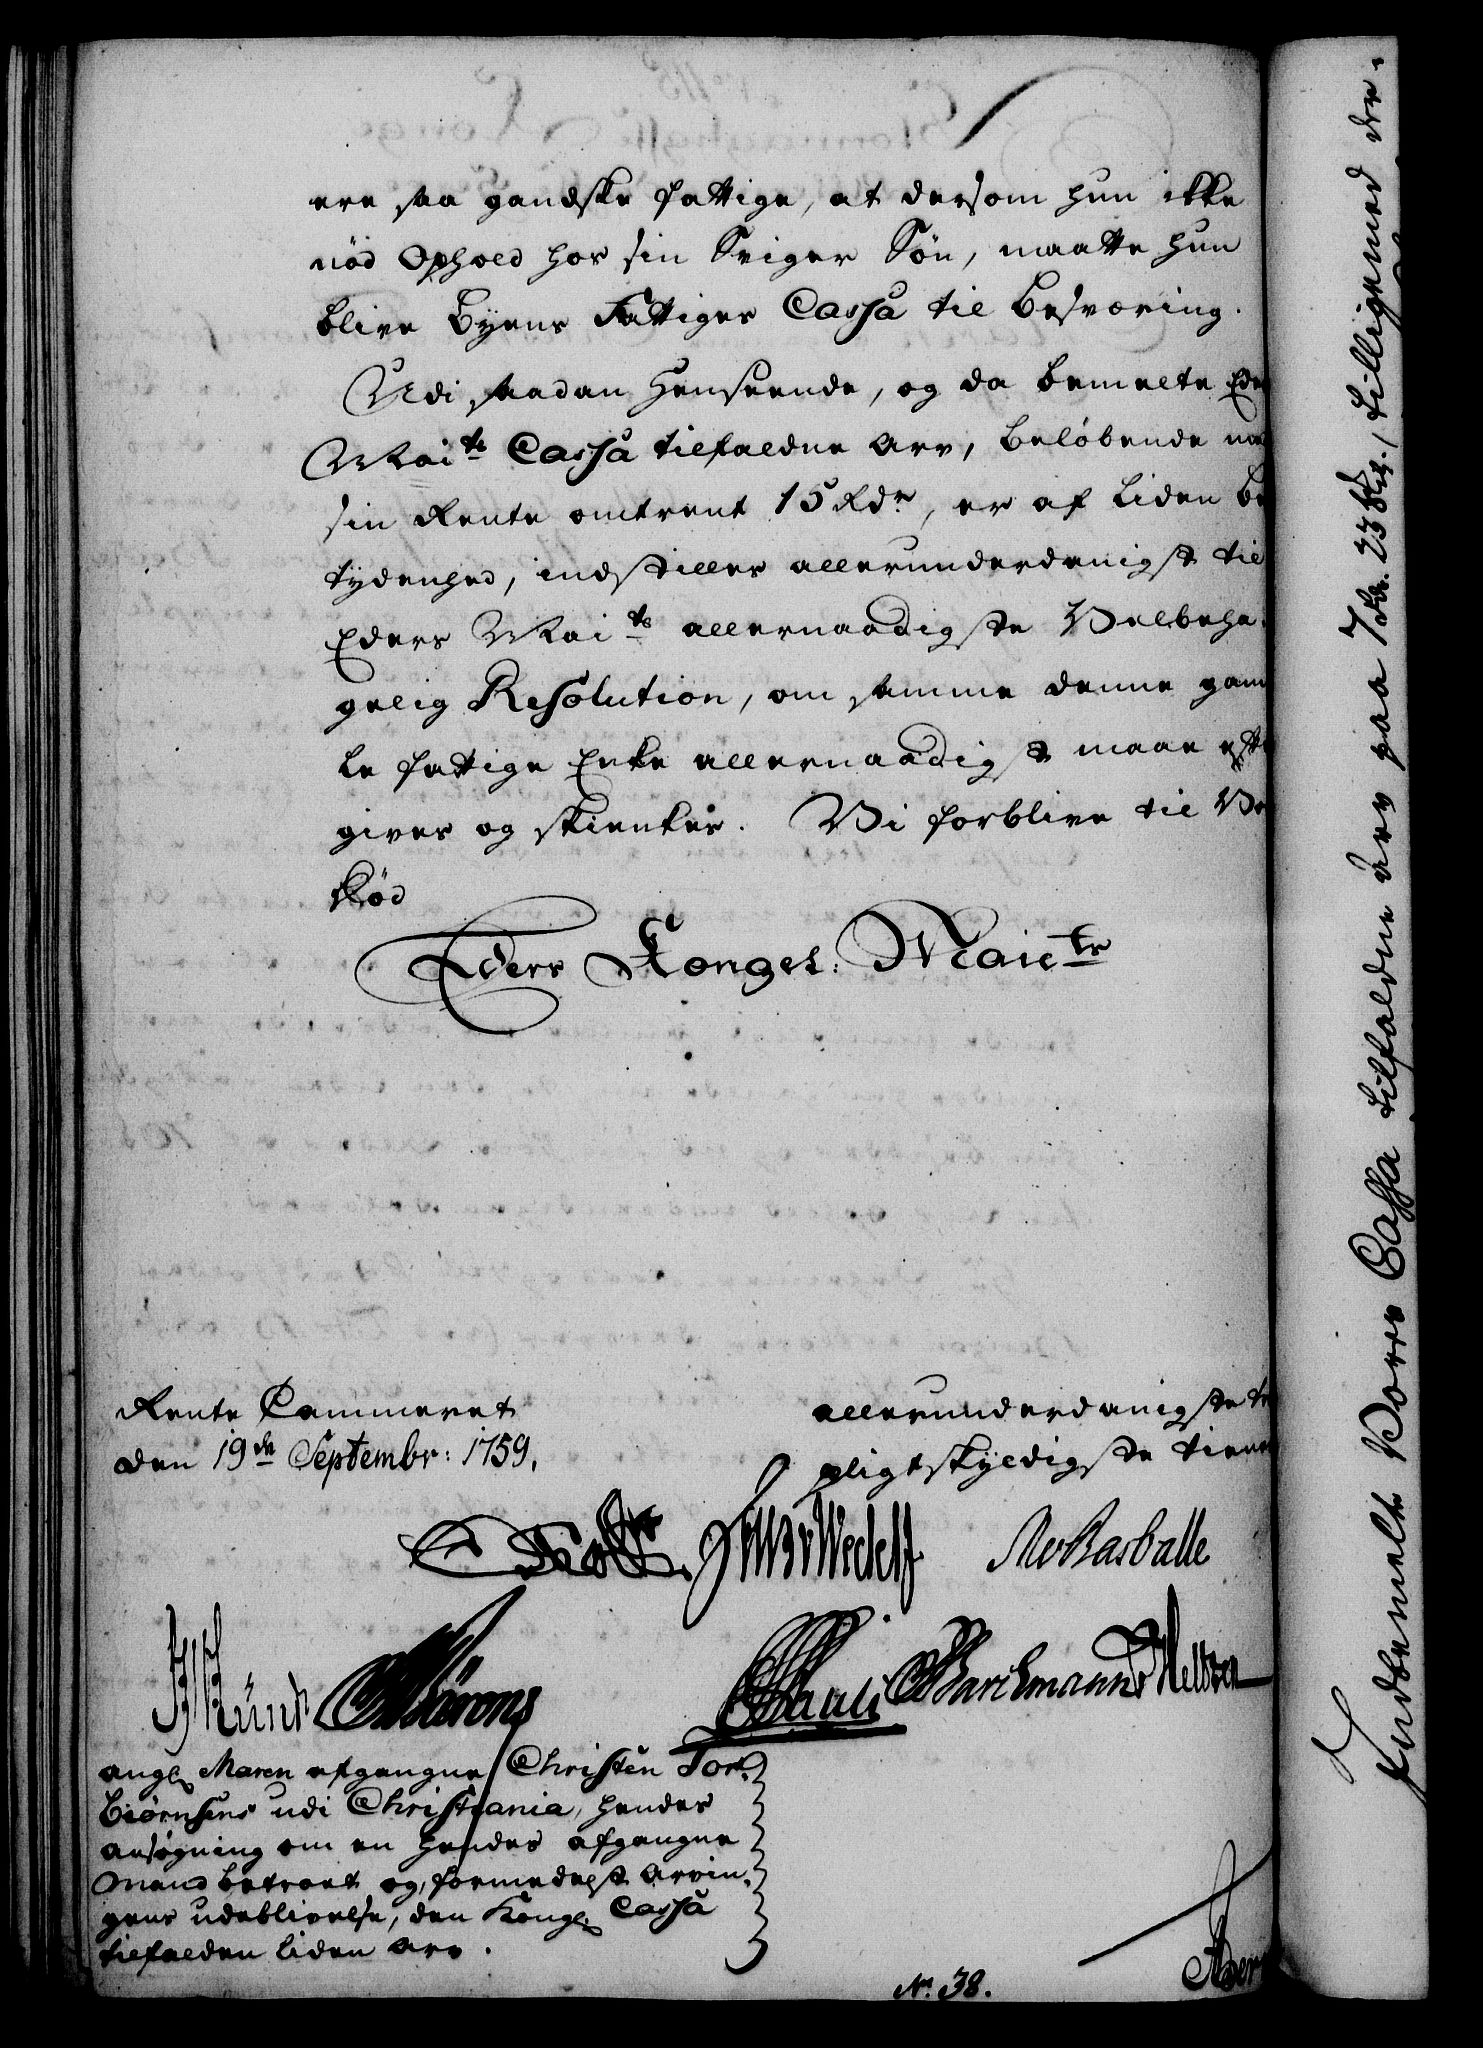 ere saa gandske fattige, at dersom hun ikke
nöd Ophold hos sin Sviger Sön, maatte hun
blive Byens Fattiges Cassa til Besværing.
Udi saadan Henseende, og da bemelte Eders
Mai.ts Cassa tilfaldne Arv, beløbende med
sin Rente omtrent 15 Rdr, er af liden be
tydenhed, indstilles allerunderdanigst til
Eders Mai.ts allernaadigste Velbeha-
gelig Resolution, om samme denne gam
le fattige Enke allernaadigst maae efter
gives og skienkes. Vi forblive til Vor
Död
Eders Kongel: Maiets
Rente Cammeret
den 19de Septembr: 1759.
allerunderdanigste
pligtskyldigste tiener
Barchmann
ang: Maren afgangne Christen Tor-
biörnsens udi Christiania, hendes
ansøgning om en hendes afgangne
Mand betroet og, formedelst Arvin-
gens udeblivelse, den Kongl: Cassa
tilfalden liden Arv.
No. 38.
Indbemelte Vores Cassa tilfaldne Arv paa 7 Rdr. 23 sk:, tilligemed der-